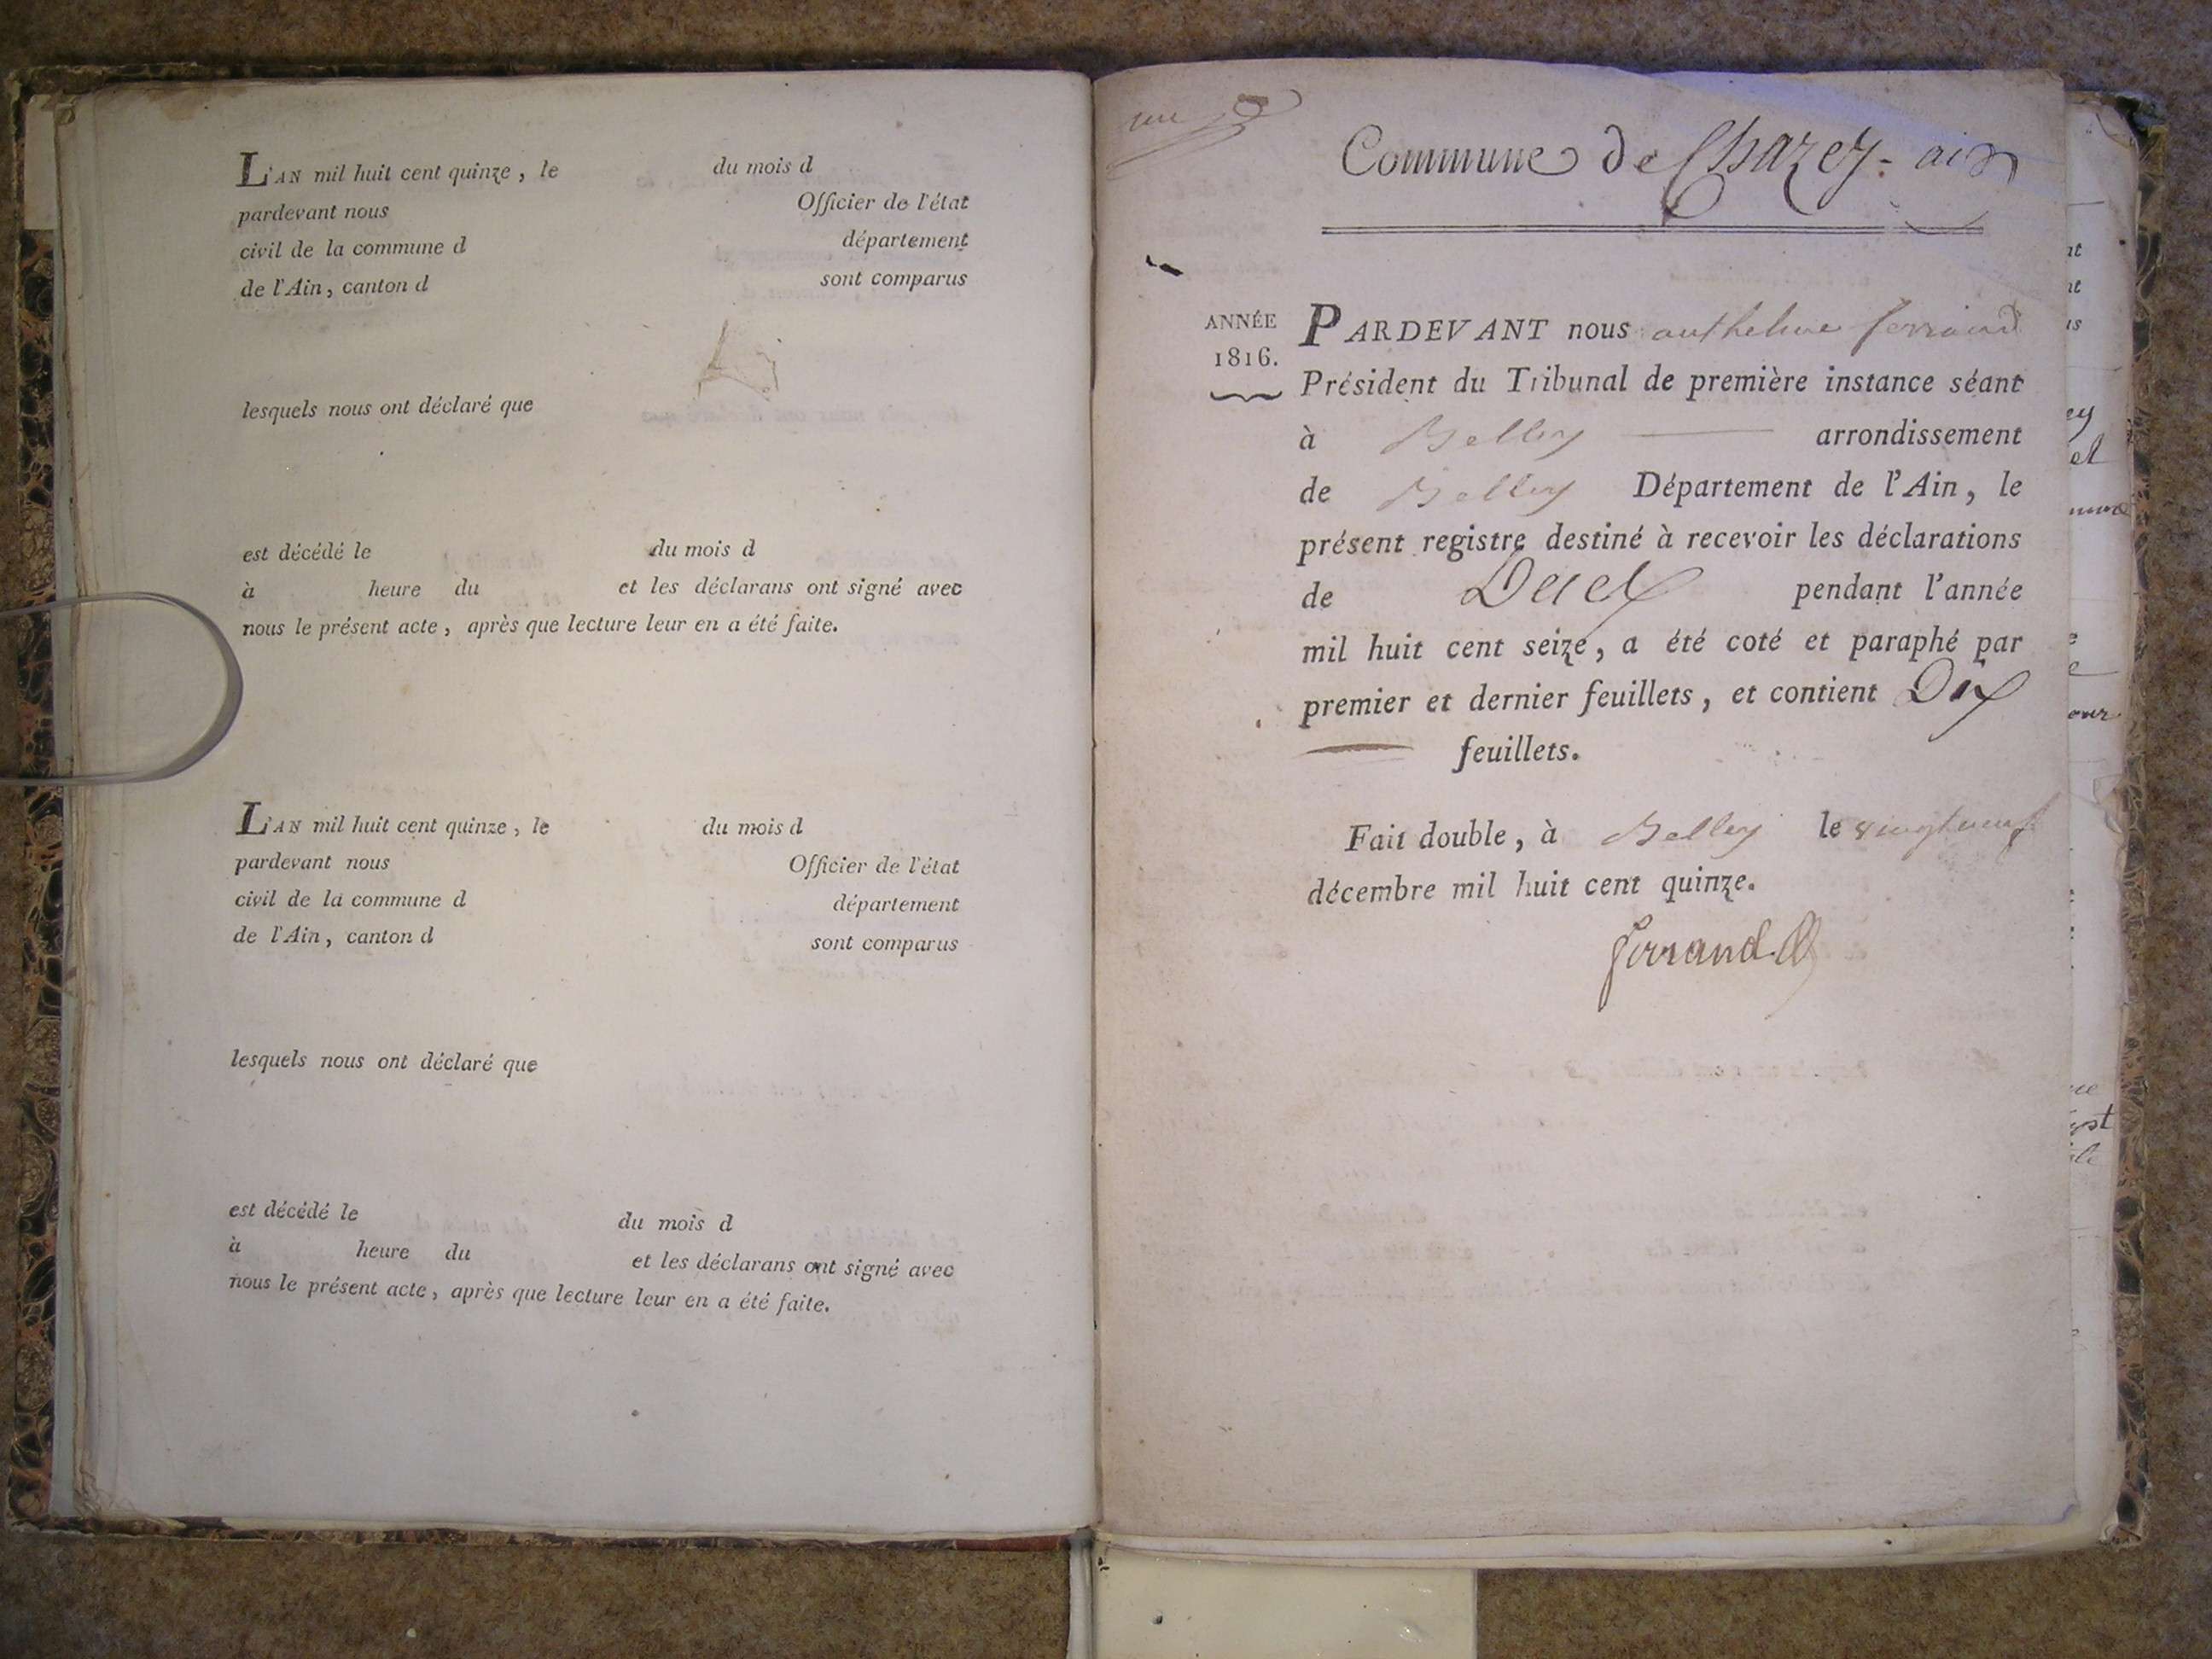 L'AN mil huit cent quinze, le du mois d
pardevant nous Officier de l'état
civil de la commune d département
de l'Ain, canton d sont comparus
lesquels nous ont déclaré que
est décédé le du mois d
à heure du et les déclarans ont signé avec
nous le présent acte, après que lecture leur en a été faite.
L'AN mil huit cent quinze, le du mois d
pardevant nous Officier de l'état
civil de la commune d département
de l'Ain, canton d sont comparus
lesquels nous ont déclaré que
est décédé le du mois d
à heure du et les déclarans ont signé avec
nous le présent acte, après que lecture leur en a été faite.
un
Commune de Chazey-ain
ANNÉE
1816.
PARDEVANT nous anthelme ferrand
Président du Tribunal de première instance séant
à Belley arrondissement
de Belley Département de l'Ain, le
présent registre destiné à recevoir les déclarations
de Décès pendant l'année
mil huit cent seize, a été coté et paraphé par
premier et dernier feuillets, et contient Dix
feuillets.
Fait double, à Belley le vingt neuf
décembre mil huit cent quinze.
ferrand